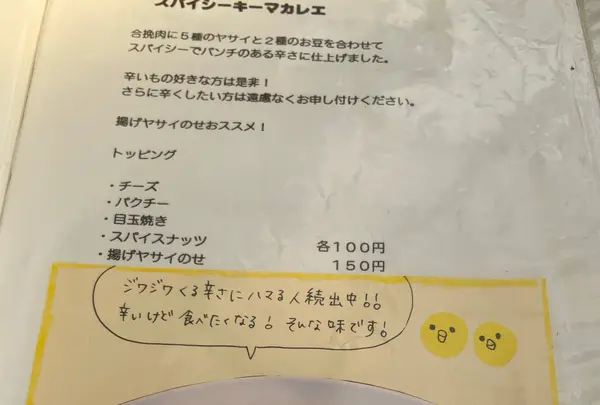 スパイシーキーマカレエ
合挽肉に5種のヤサイと2種のお豆を合わせて
スパイシーでパンチのある辛さに仕上げました。
辛いもの好きな方は是非!
さらに辛くしたい方は遠慮なくお申し付けください。
揚げヤサイのせおススメ!
トッピング
・チーズ
・パクチー
・目玉焼き
・スパイスナッツ 各100円
・揚げヤサイのせ 150円
ジワジワくる辛さにハマる人続出中!!
辛いけど食べたくなる! そんな味です!